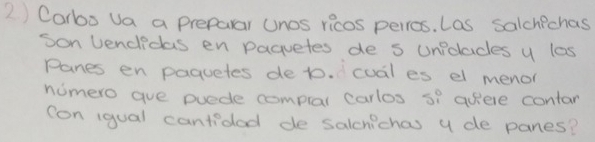 2) Carlos va a preparar unos ricos perros. Las salchichas
son vendidas en paquetes de 5 unidades y los
panes en paquetes de 10. ¿cuál es el menor
número que puede comprar Carlos si quiere contar
con igual cantidad de salchichas y de panes?